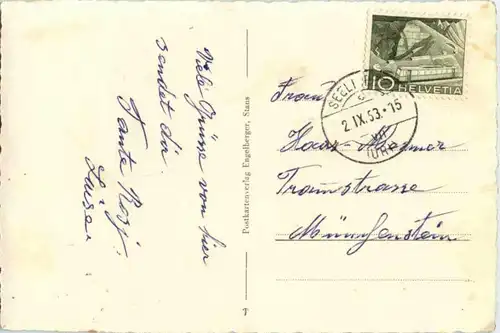 Viele Grüsse von hier
sendet dir
Tante Rosj.
Luise.
Postkartenverlag Engelberger, Stans
10 HELVETIA
SEELI
2. IX. 53.-16
VII
(URI)
Frau
Haas-
Tramstrasse
Münchenstein